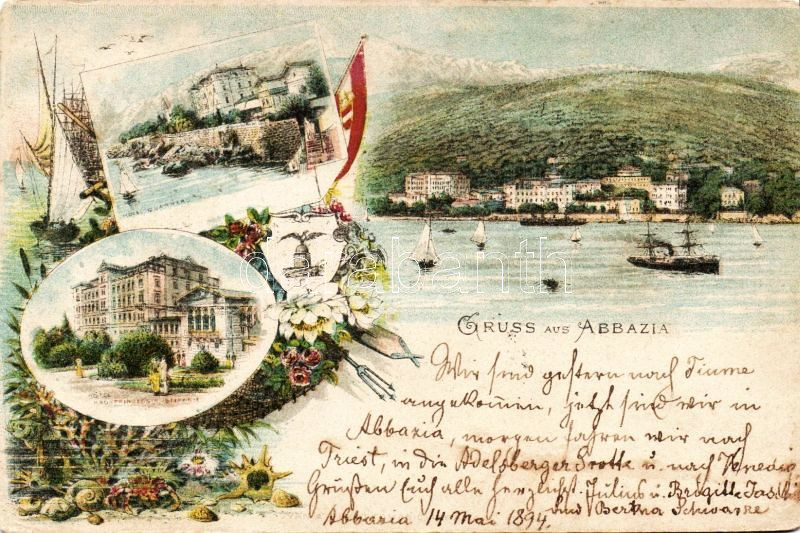 GRUSS AUS ABBAZIA
HOTEL
KRONPRINZESSIN STEFANIE
Wir sind gestern nach Fiume
angekommen, jetzt sind wir in
Abbazia, morgen fahren wir nach
Triest, in die Adelsberger Grotte u. nach Venedig
Grüßen Euch alle herzlichst. Julius u. Brigitte
und Bertha Schwarke
Abbazia 14 Mai 1894.
darabanth